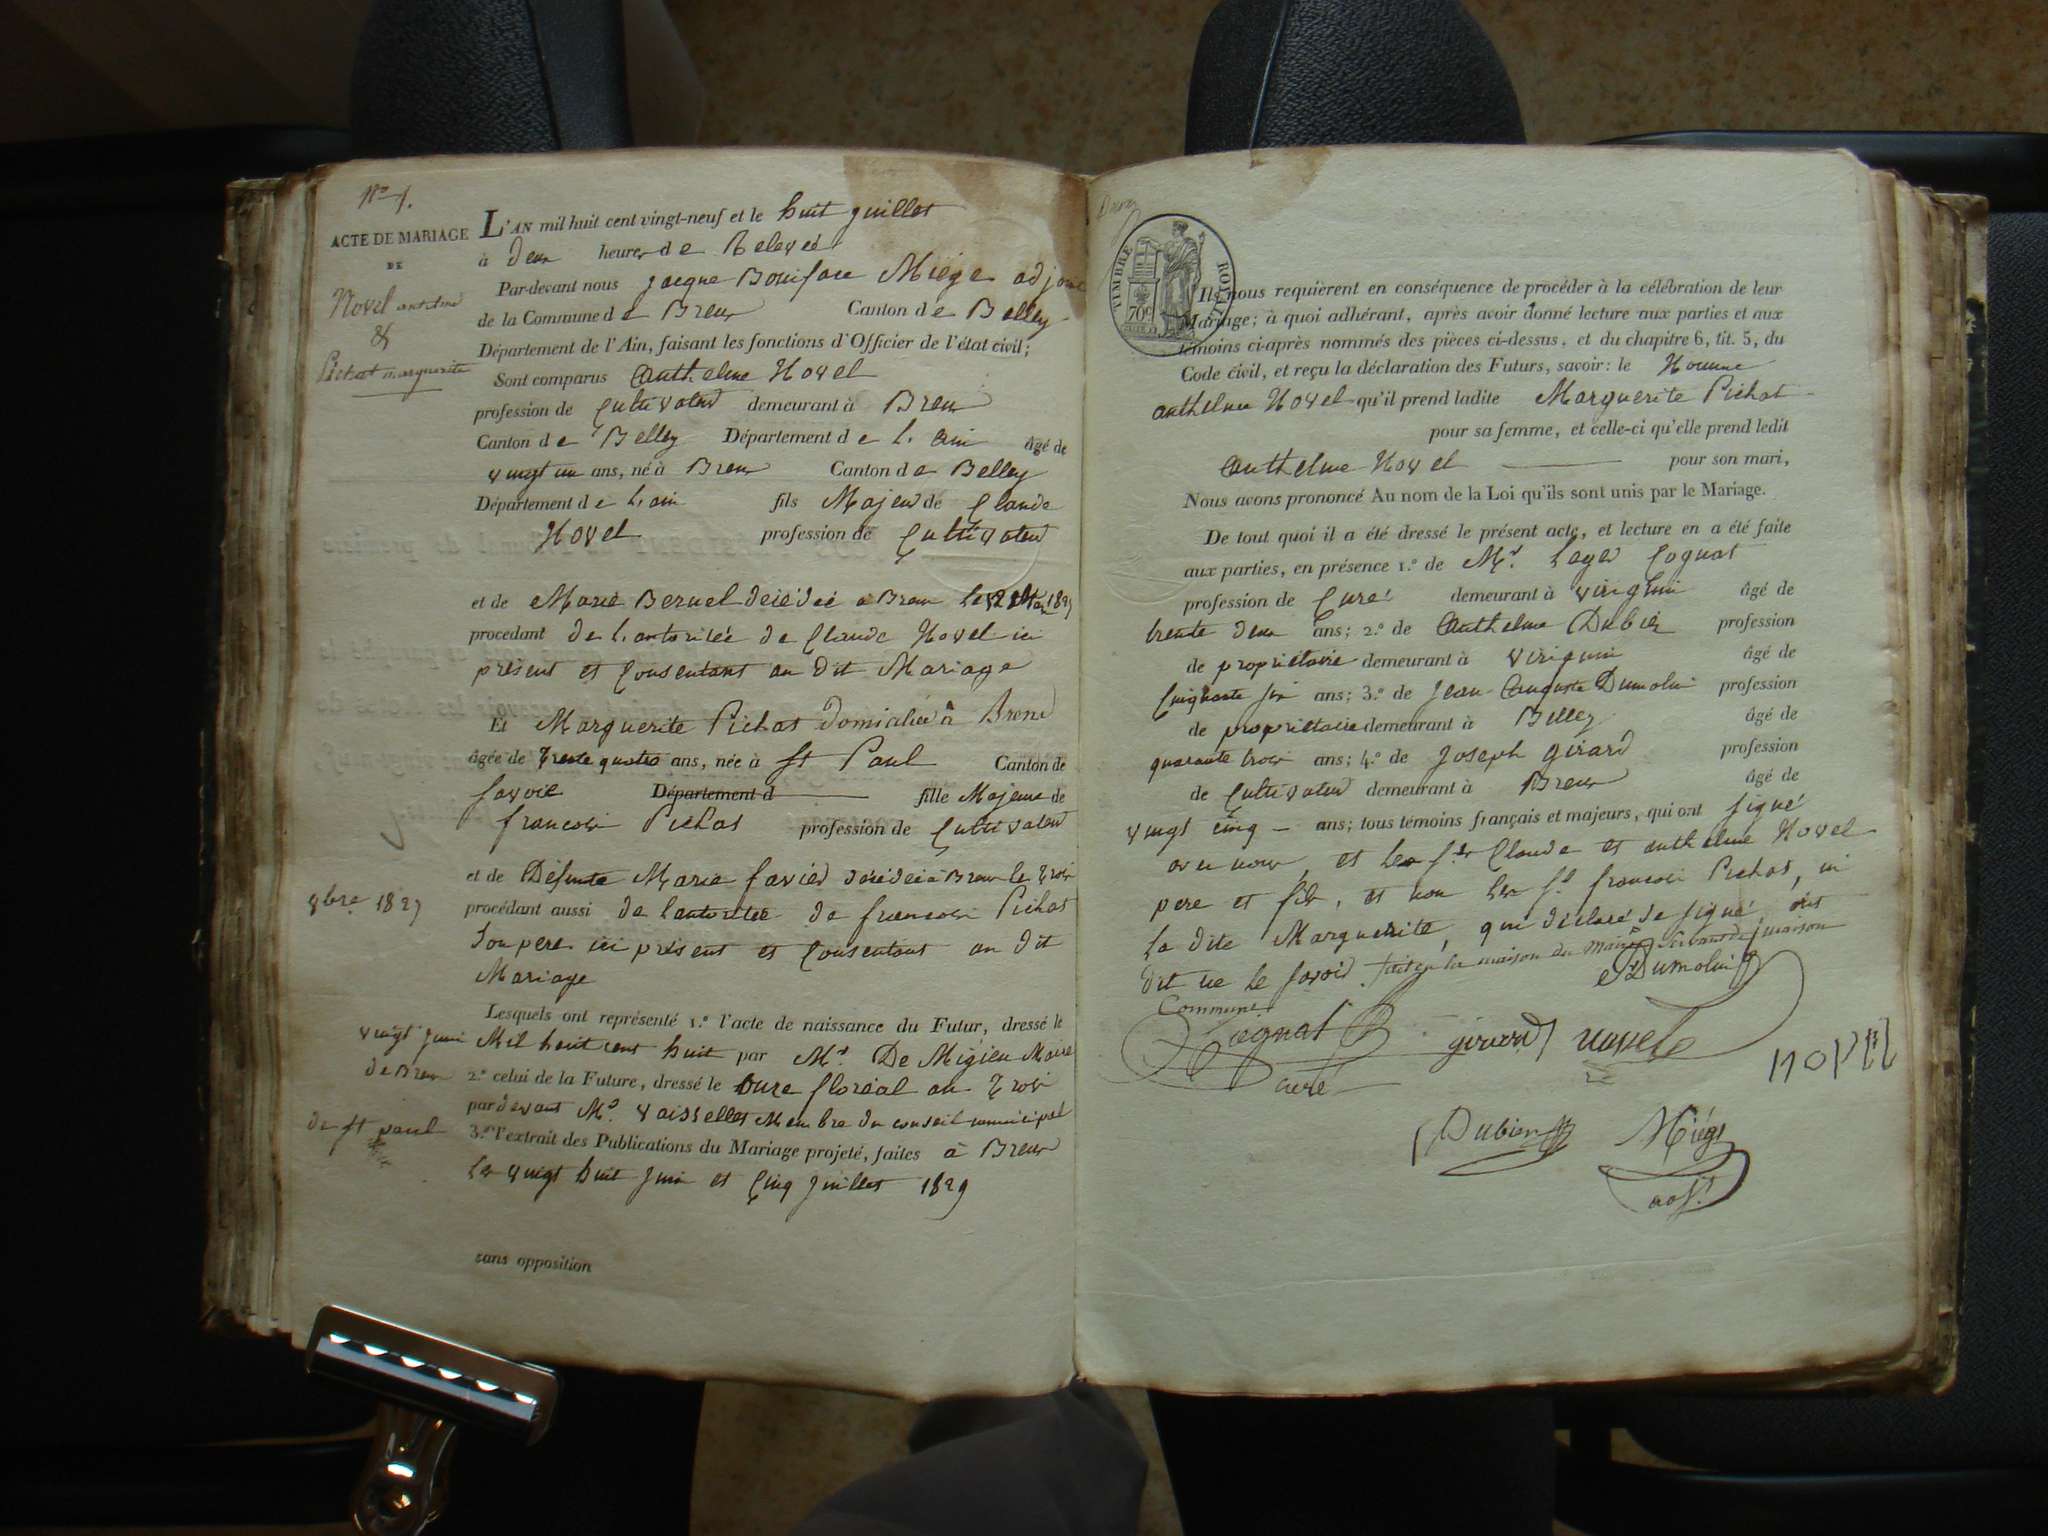 N° 7.
ACTE DE MARIAGE
DE
Novel anthelme
&
Pichat marguerite
L'AN mil huit cent vingt-neuf et le huit juillet
à deux heures de Relevée
Par-devant nous jacque Boniface Miége adjoint
de la Commune de Brens Canton de Belley
Département de l'Ain, faisant les fonctions d'Officier de l'état civil;
Sont comparus anthelme Novel
profession de Cultivateur demeurant à Brens
Canton de Belley Département de l'ain âgé de
vingt un ans, né à Brens Canton de Belley
Département de l'ain fils Majeur de Claude
Novel profession de Cultivateur
et de Marie Bernel décédée a Brens le 1829
procedant de l'autoritée de Claude Novel ici
présent et Consentant au dit Mariage
Et Marguerite Pichat domiciliée à Brens
âgée de trente quatre ans, née à St Paul Canton de
Savoie Département d fille Majeure de
francois Pichat profession de Cultivateur
et de Défunte Marie favier décédée à Brens le trois
8bre 1827
procédant aussi de l'autoritée de francois Pichat
Son pere ici présent et Consentant au dit
Mariage
Lesquels ont représenté 1.° l'acte de naissance du Futur, dressé le
vingt juin Mil huit cent huit par Mr De Migieu Maire
de Brens 2.° celui de la Future, dressé le onze floréal an trois
pardevant Mr. Vaissellet Membre du conseil municipal
de st paul 3.° l'extrait des Publications du Mariage projeté, faites à Brens
les vingt huit juin et Cinq juillet 1829
sans opposition
TIMBRE ROYAL
70c
Ils nous requièrent en conséquence de procéder à la célébration de leur
Mariage; à quoi adhérant, après avoir donné lecture aux parties et aux
témoins ci-après nommés des pièces ci-dessus, et du chapitre 6, tit. 5, du
Code civil, et reçu la déclaration des Futurs, savoir: le Nommé
anthelme Novel qu'il prend ladite Marguerite Pichat
pour sa femme, et celle-ci qu'elle prend ledit
anthelme Novel pour son mari,
Nous avons prononcé Au nom de la Loi qu'ils sont unis par le Mariage.
De tout quoi il a été dressé le présent acte, et lecture en a été faite
aux parties, en présence 1.° de Mr. Leger Cognat
profession de Curé demeurant à virignin âgé de
trente deux ans; 2.° de anthelme Dubier profession
de propriétaire demeurant à virignin âgé de
Cinquante six ans; 3.° de jean auguste Dumolin profession
de propriettaire demeurant à Belley âgé de
quarante trois ans; 4.° de joseph girard profession
de Cultivateur demeurant à Brens âgé de
vingt cinq ans; tous témoins français et majeurs, qui ont signé
avec nous, et les Srs Claude et anthelme Novel
pere et fils, et non les Sr francois Pichat, ni
la dite Marguerite, qui déclaré de signé, ont
dit ne le savoir fait en la maison du Maire Servant de maison
Commune
Dumolin
Cognat
curé
girard
novel
novel
Dubier
Miége
adjt